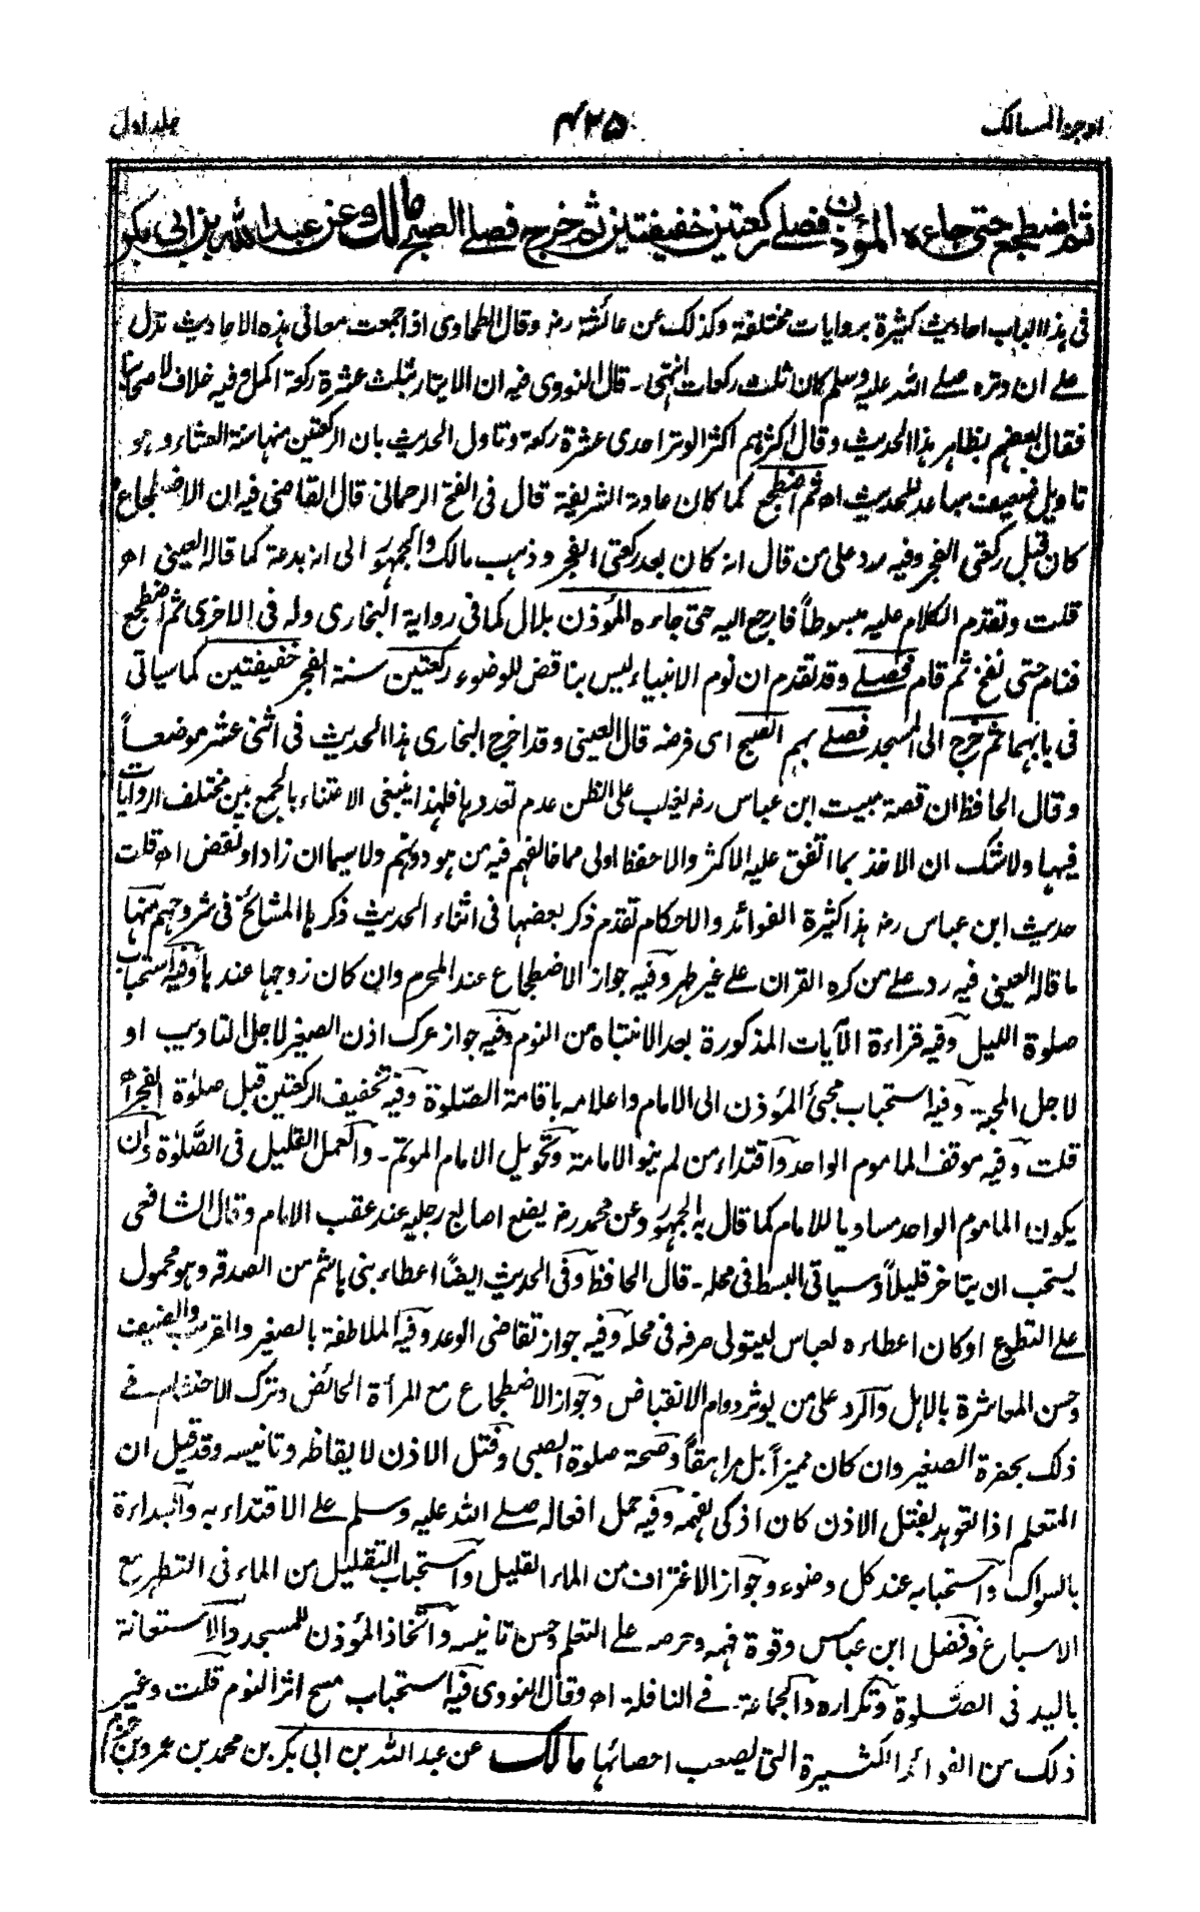 اوجز المسالک
۴۲۵
جلد اول
ثم اضطجع حتى جاءه المؤذن فصلے ركعتين خفيفتين ثم خرج فصلے الصبح مالك وعن عبد الله بن ابى بكر
فى هذا الباب احاديث كثيرة بروايات مختلفة وكذلك عن عائشة رضـ وقال الطحاوى اذا جمعت معانى هذه الاحاديث تدل
علے ان وتره صلے الله عليه وسلم كان ثلث ركعات انتهى۔ قال النووى فيه ان الايتار بثلث عشرة ركعة اكمل وفيه خلاف لاصحابنا
فقال بعضهم بظاهر هذا الحديث وقال اكثرهم اكثر الوتر احدى عشرة ركعة وتاول الحديث بان الركعتين منها سنة العشاء وهو
تاويل ضعيف مباعد للحديث اھ ثم اضطجع كما كان عادته الشريفة قال فى الفتح الرحمانى قال القاضى فيه ان الاضطجاع
كان قبل ركعتى الفجر وفيه رد على من قال انه كان بعد ركعتى الفجر وذهب مالك والجمهور الى انه بدعة كما قاله العينى اھ
قلت وتقدم الكلام عليه مبسوطاً فارجع اليه حتى جاءه المؤذن بلال كما فى رواية البخارى وله فى الاخرى ثم اضطجع
فنام حتى نفخ ثم قام فصلے وقد تقدم ان نوم الانبياء ليس بناقض للوضوء ركعتين سنة الفجر خفيفتين كما سياتى
فى بابهما ثم خرج الى المسجد فصلے بهم الصبح اى فرضه قال العينى وقد اخرج البخارى هذا الحديث فى اثنى عشر موضعاً
وقال الحافظ ان قصة مبيت ابن عباس رضـ يغلب على الظن عدم تعددها فلهذا ينبغى الاعتناء بالجمع بين مختلف الروايات
فيها ولا شك ان الاخذ بما اتفق عليه الاكثر والاحفظ اولى مما خالفهم فيه من هو دونهم ولا سيما ان زاد او نقص اھ قلت
حديث ابن عباس رضـ هذا كثيرة الفوائد والاحكام تقدم ذكر بعضها فى اثناء الحديث ذكرها المشائخ فى شروحهم منها
ما قاله العينى فيه رد علے من كره القران علے غير طهر وفيه جواز الاضطجاع عند المحرم وان كان زوجها عندها وفيه استحباب
صلوة الليل وفيه قراءة الآيات المذكورة بعد الانتباه من النوم وفيه جواز عرك اذن الصغير لاجل التاديب او
لاجل المحبة وفيه استحباب مجئ المؤذن الى الامام واعلامه باقامة الصلوة وفيه تخفيف الركعتين قبل صلوة الفجر اھ
قلت وفيه موقف الماموم الواحد واقتداء من لم ينو الامامة وتحويل الامام المؤتم۔ والعمل القليل فى الصَّلوٰة وان
يكون الماموم الواحد مساويا للامام كما قال به الجمهور وعن محمد رضـ يضع اصابع رجليه عند عقب الامام وقال الشافعى
يستحب ان يتاخر قليلاً وسياتى البسط فى محله۔ قال الحافظ وفى الحديث ايضًا اعطاء بنى هاشم من الصدقه وهو محمول
علے التطوع او كان اعطاءه لعباس ليتولى صرفه فى محله وفيه جواز تقاضى الوعد وفيه الملاطفة بالصغير والقريب والضيف
وحسن المعاشرة بالاهل والرد على من يوثر دوام الانقباض وجواز الاضطجاع مع المرأة الحائض وترك الاحتشام فے
ذلك بحضرة الصغير وان كان مميزاً بل مراهقاً وصحة صلوة الصبى وفتل الاذن لايقاظه وتانيسه وقد قيل ان
المتعلم اذا تعوهد بفتل الاذن كان اذكى لفهمه وفيه حمل افعاله صلے الله عليه وسلم علے الاقتداء به والبداءة
بالسواك واستحبابه عند كل وضوء وجواز الاغتراف من الماء القليل واستحباب التقليل من الماء فى التطهر مع
الاسباغ وفضل ابن عباس وقوة فهمه وحرصه علے التعلم وحسن تانيسه واتخاذ المؤذن للمسجد والاستعانة
باليد فى الصَّلوة وتكراره والجماعة۔ فے النافلة اھ وقال النووى فيه استحباب مسح اثر النوم قلت وغير
ذلك من الفوائد الكثيرة التى يصعب احصائها مالك عن عبد الله بن ابى بكر بن محمد بن عمرو بن حزم